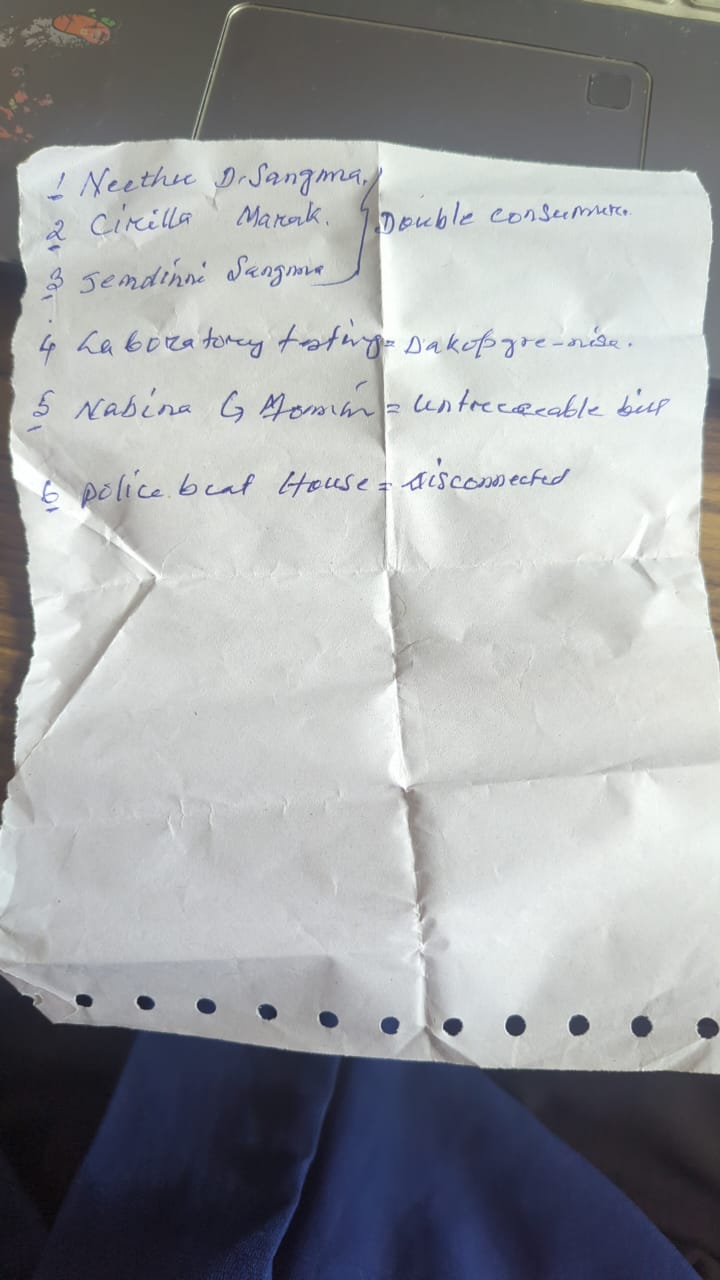 1 Neethu D. Sangma.
2 Cirilla Marak. } Double consumer.
3 Jendinni Sangma
4 Laboratory testing = Dakopgre-
5 Nabina G Momin = Untreceable bill
6 police beat House = disconnected